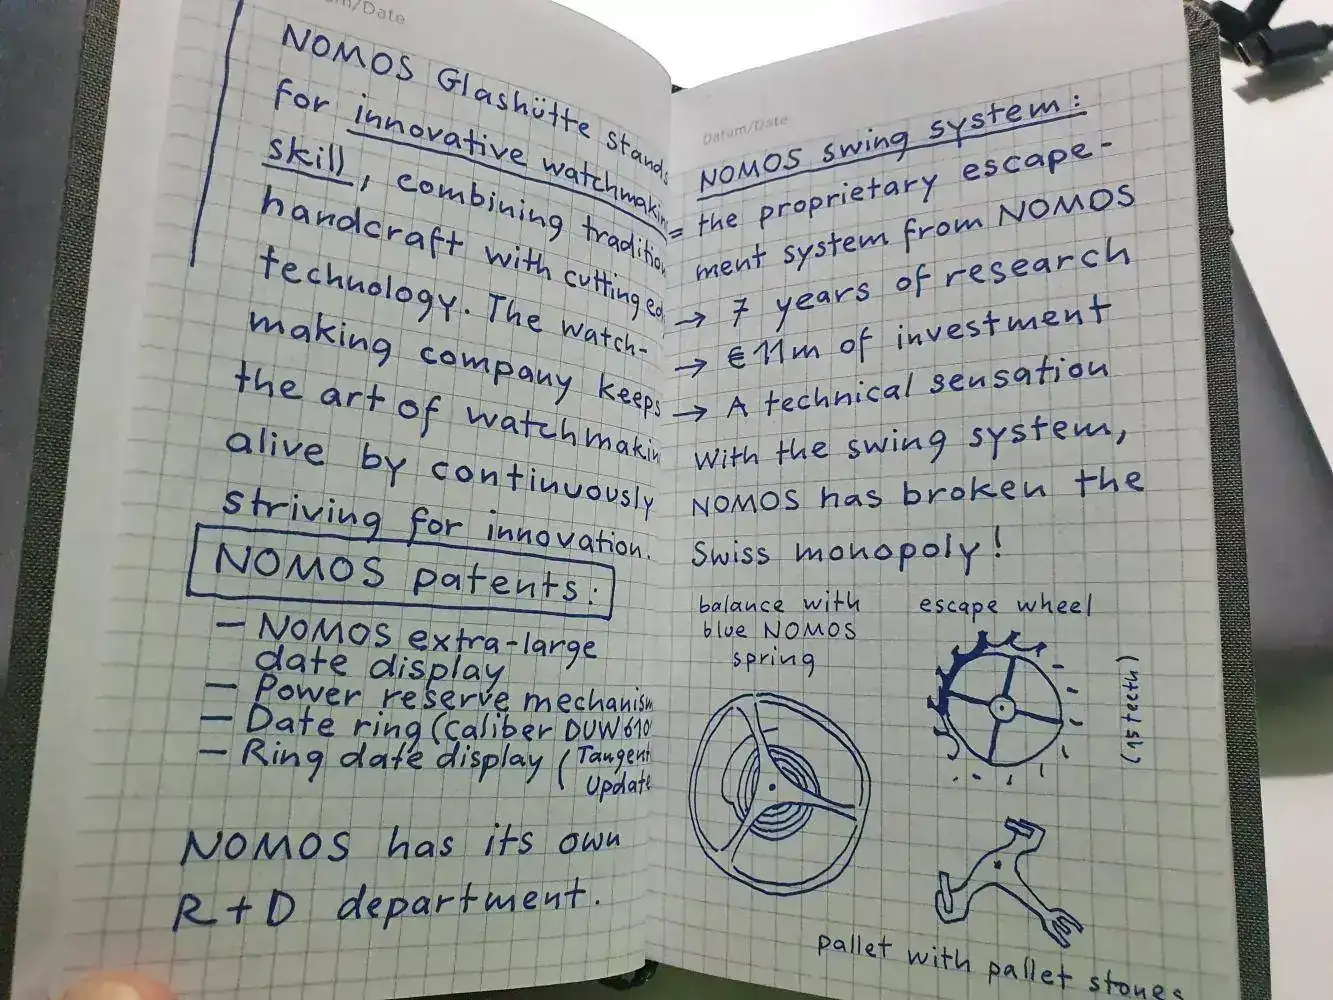 NOMOS Glashütte stands
for innovative watchmakin
skill, combining tradition
handcraft with cutting ed
technology. The watch-
making company keeps
the art of watchmakin
alive by continuously
striving for innovation.
NOMOS patents:
— NOMOS extra-large
date display
— Power reserve mechanism
— Date ring (caliber DUW 610
— Ring date display (Tangent
Update
NOMOS has its own
R+D department.
Datum/Date
NOMOS swing system:
= the proprietary escape-
ment system from NOMOS
→ 7 years of research
→ €11m of investment
→ A technical sensation
With the swing system,
NOMOS has broken the
Swiss monopoly!
balance with
blue NOMOS
spring
escape wheel
(15 teeth)
pallet with pallet stones